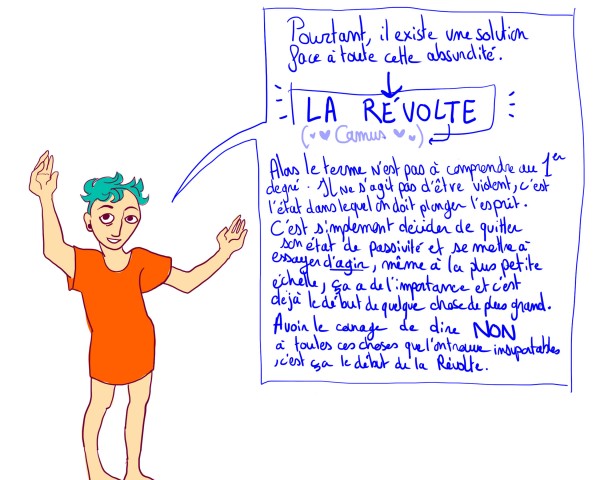 Pourtant, il existe une solution
face à toute cette absurdité.
LA RÉVOLTE
(♥♥ Camus ♥♥)
Alors le terme n'est pas à comprendre au 1er
degré. Il ne s'agit pas d'être violent, c'est
l'état dans lequel on doit plonger l'esprit.
C'est simplement décider de quitter
son état de passivité et se mettre à
essayer d'agir, même à la plus petite
échelle, ça a de l'importance et c'est
déjà le début de quelque chose de plus grand.
Avoir le courage de dire NON
à toutes ces choses que l'on trouve insuportables
, c'est ça le début de la Révolte.